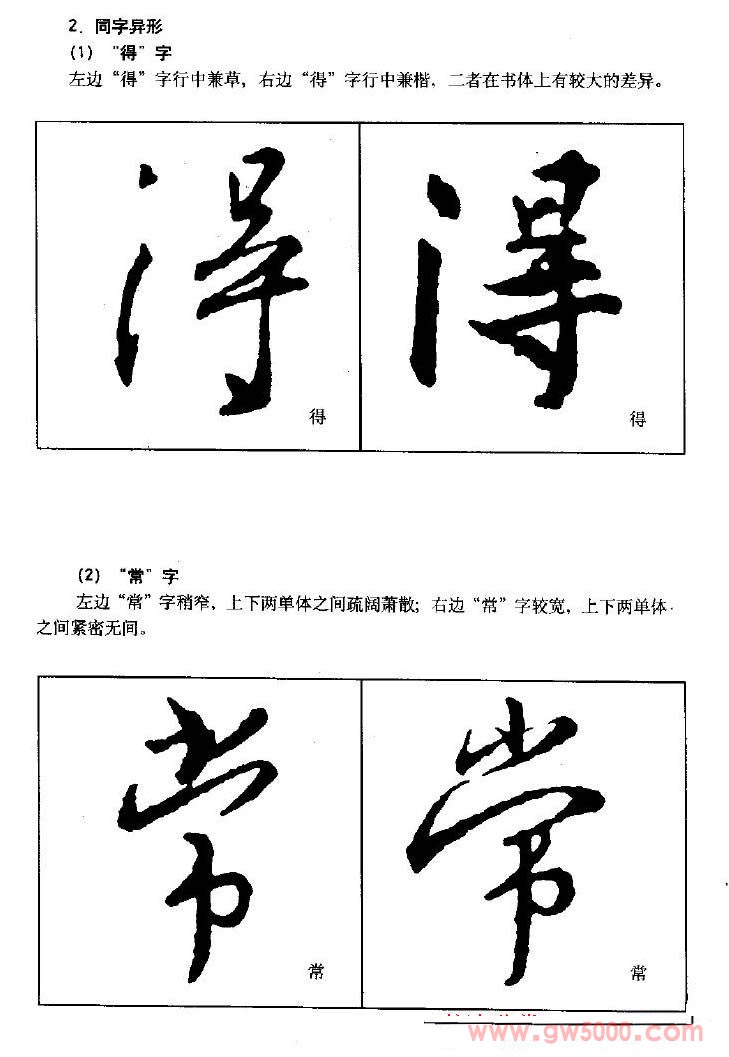 2. 同字异形
(1) “得”字
左边“得”字行中兼草，右边“得”字行中兼楷，二者在书体上有较大的差异。
得 得
得 得
(2) “常”字
左边“常”字稍窄，上下两单体之间疏阔萧散；右边“常”字较宽，上下两单体
之间紧密无间。
常 常
常 常
www.gw5000.com